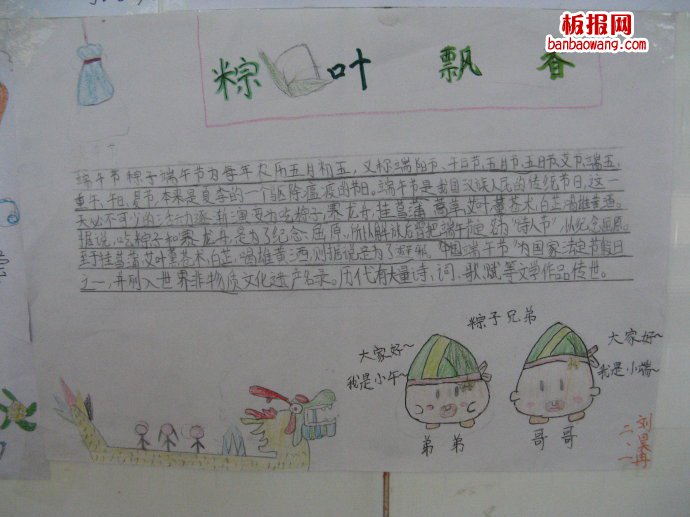 板报网
banbaowang.com
粽叶飘香
端午节粽子端午节为每年农历五月初五,又称端阳节、午日节、五月节、五日节、艾节、端五、
重午、午日、夏节,本来是夏季的一个驱除瘟疫的节日。端午节是我国汉族人民的传统节日,这一
天必不可少的活动逐渐演变为吃粽子,赛龙舟,挂菖蒲、蒿草、艾叶,薰苍术、白芷,喝雄黄酒。
据说,吃粽子和赛龙舟,是为了纪念屈原,所以解放后曾把端午节定名为“诗人节”,以纪念屈原。
至于挂菖蒲、艾叶,薰苍术、白芷,喝雄黄酒,则据说是为了避邪。“中国端午节”为国家法定节假日
之一,并列入世界非物质文化遗产名录。历代有大量诗、词、歌、赋等文学作品传世。
粽子兄弟
大家好~
我是小午~
大家好~
我是小端~
弟弟
哥哥
二.一
刘昊冉